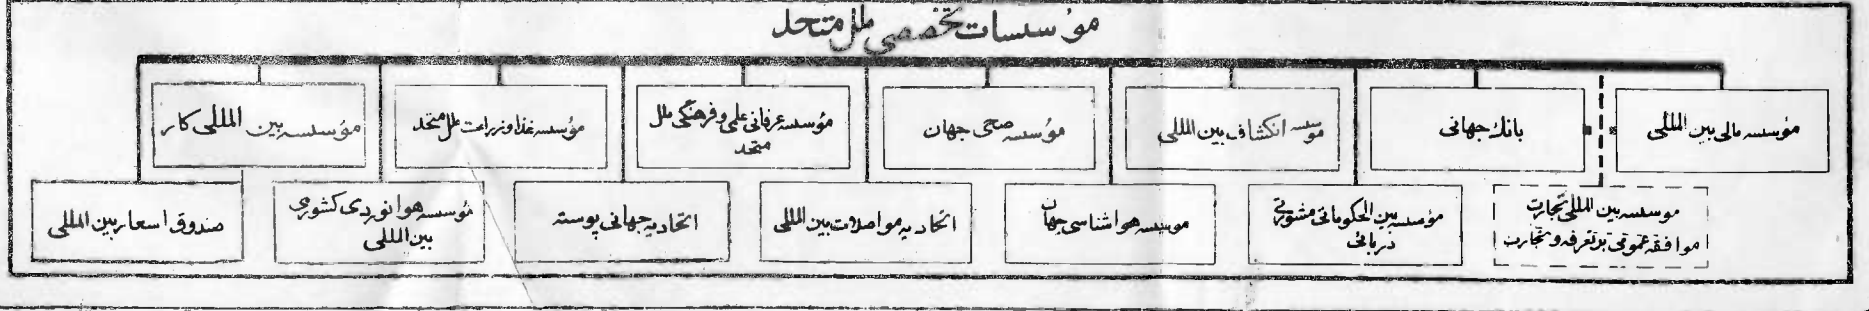 مؤسسات تخصصی ملل متحد
مؤسسه مالی بین المللی
بانک جهانی
موسسه انکشاف بین المللی
مؤسسه صحی جهان
مؤسسه عرفانی علمی و فرهنگی ملل
متحد
مؤسسه غذا و زراعت ملل متحد
مؤسسه بین المللی کار
موسسه بین المللی تجارت
موافقه عمومی بر تعرفه و تجارت
مؤسسه بین الحکوماتی مشورتی
دریائی
موسسه هوا شناسی جهان
اتحادیه مواصلات بین المللی
اتحادیه جهانی پوسته
مؤسسه هوا نوردی کشوری
بین المللی
صندوق اسعار بین المللی